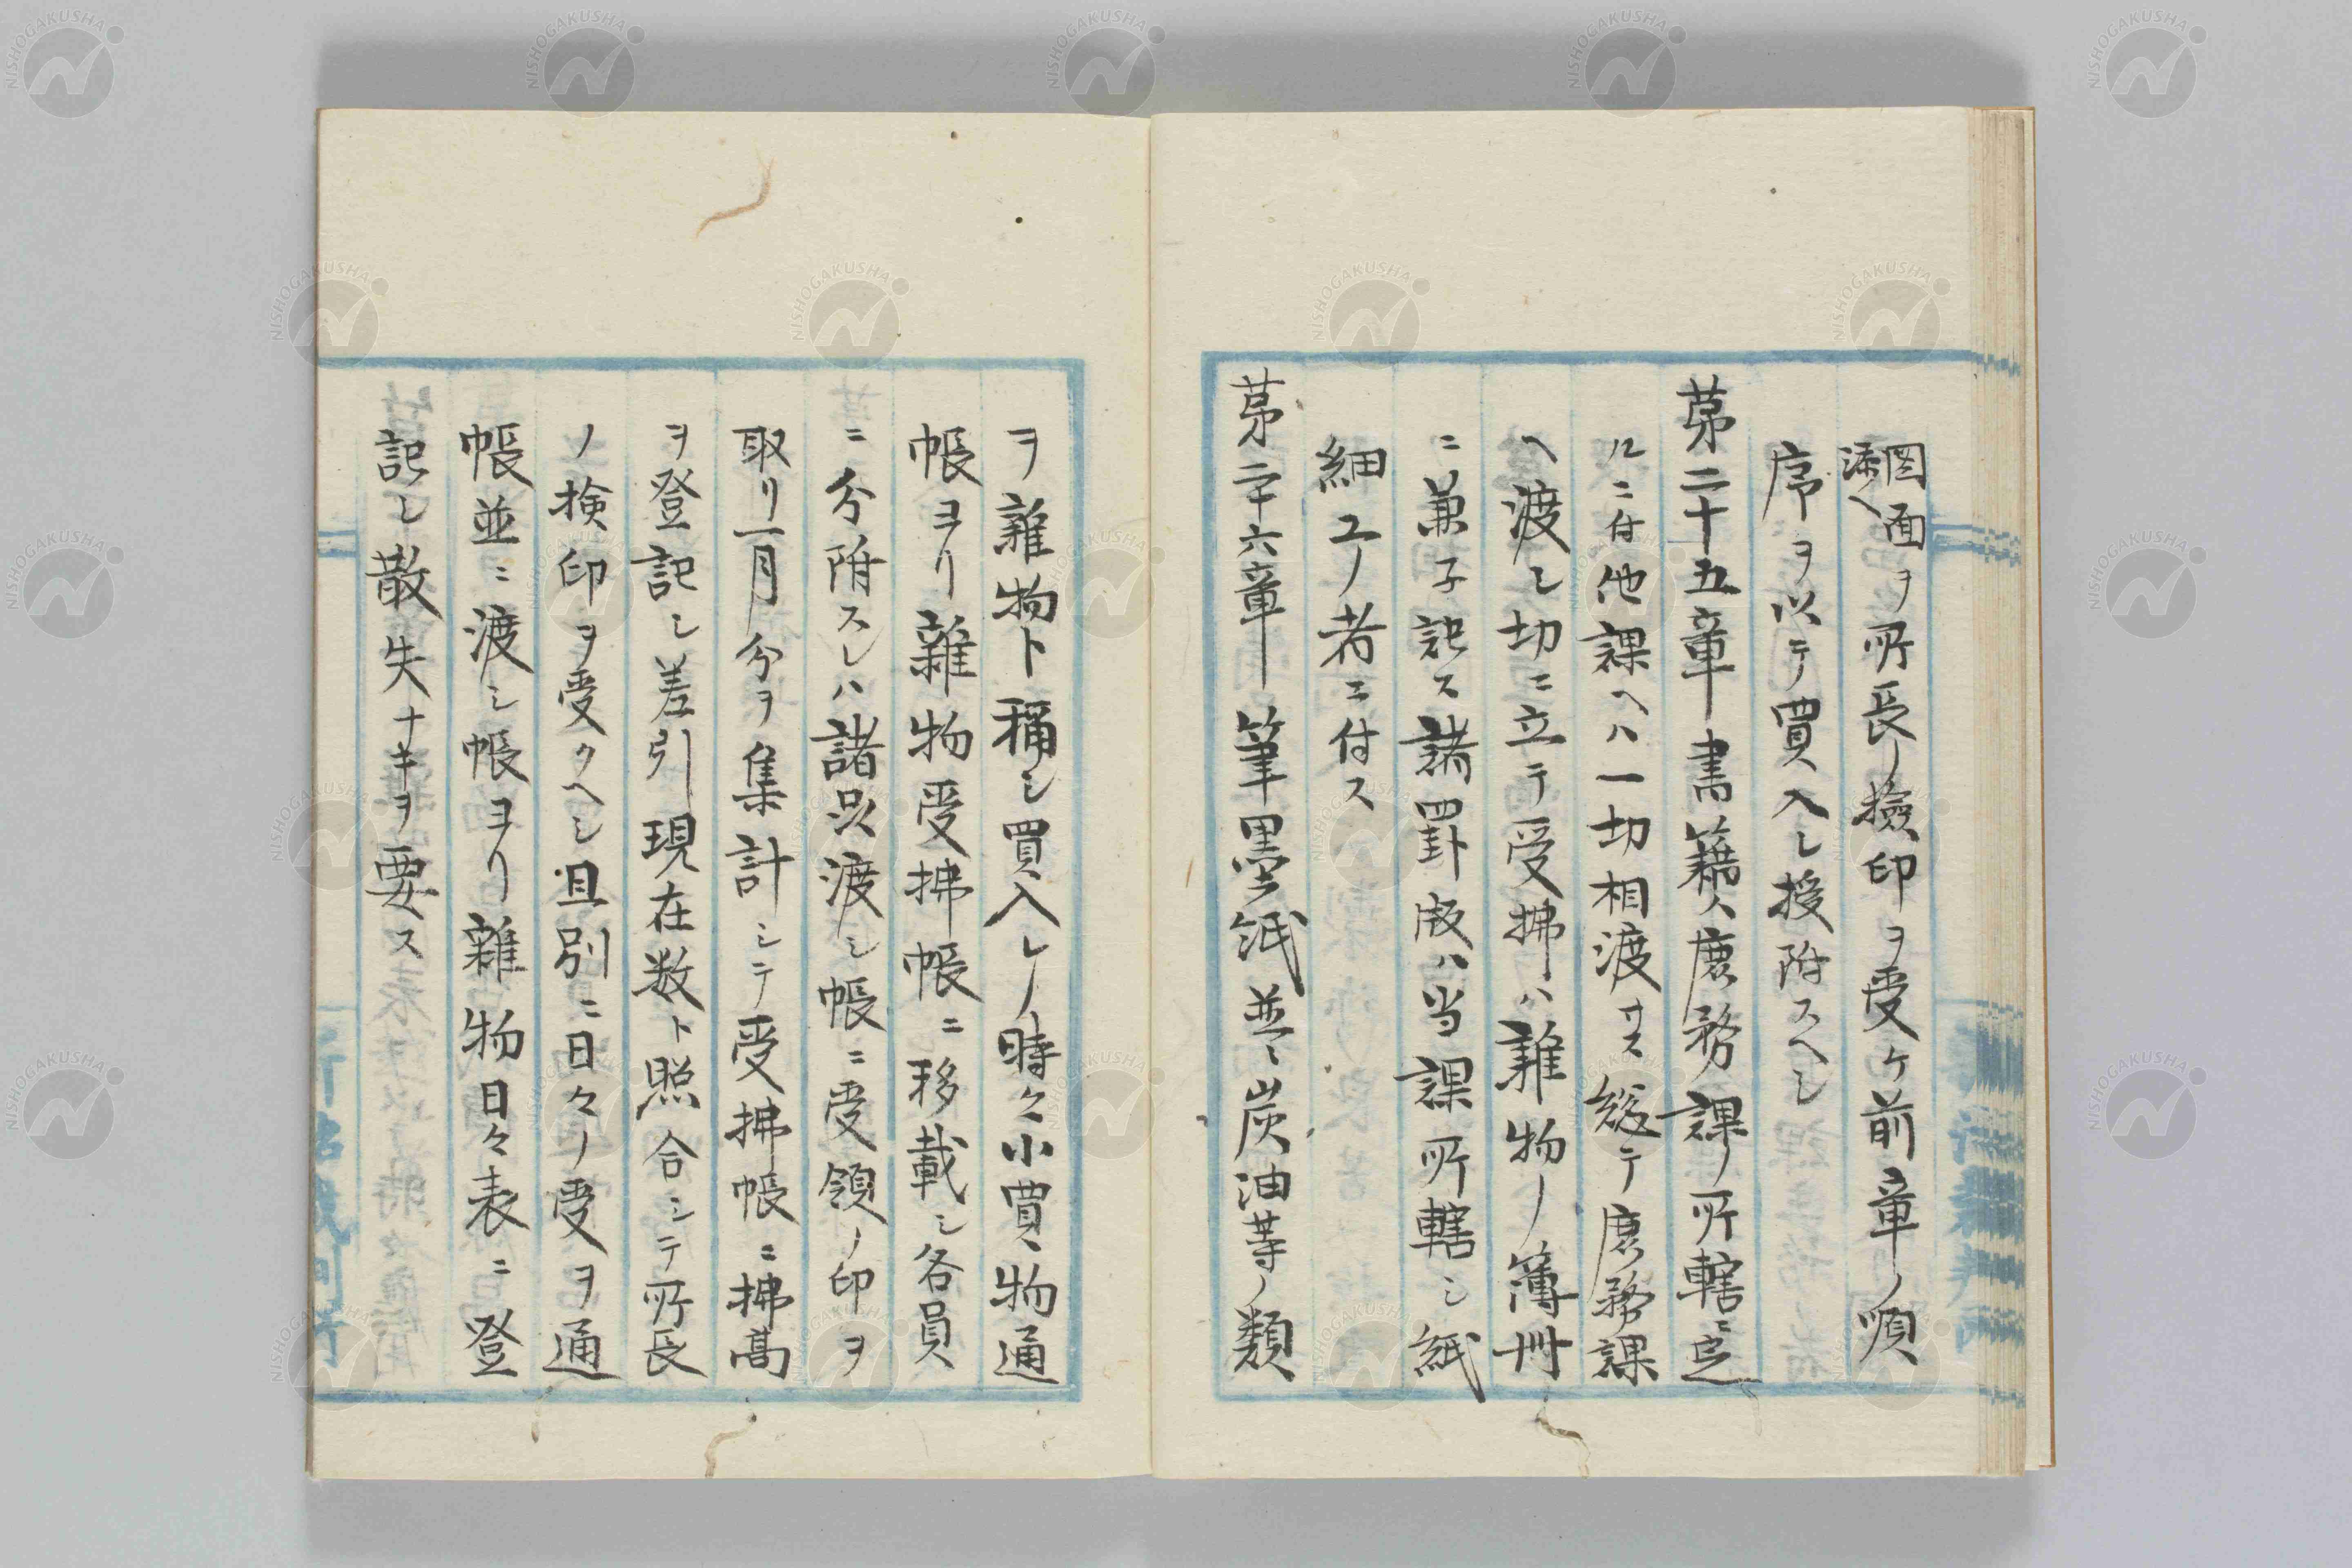 図面ヲ所長ノ検印ヲ受ケ前章ノ順
添ヘ
序ヲ以テ買入レ授附スヘシ
第二十五章 書籍ハ庶務課ノ所轄ニ定
ルニ付他課ヘハ一切相渡サス総テ庶務課
ヘ渡シ切ニ立テ受払ハ雑物ノ簿冊
ニ兼子記ス諸罫版ハ当課所轄シ紙
細工ノ者ニ付ス
第二十六章 筆墨紙並ニ炭油等ノ類
ヲ雑物ト称シ買入レノ時々小買物通
帳ヨリ雑物受払帳ニ移載シ各員
ニ分附スレハ諸品渡シ帳ニ受領ノ印ヲ
取リ一月分ヲ集計シテ受払帳ニ払高
ヲ登記シ差引現在数ト照合シテ所長
ノ検印ヲ受クヘシ且別ニ日々ノ受ヲ通
帳並ニ渡シ帳ヨリ雑物日々表ニ登
記シ散失ナキヲ要ス
NISHOGAKUSHA